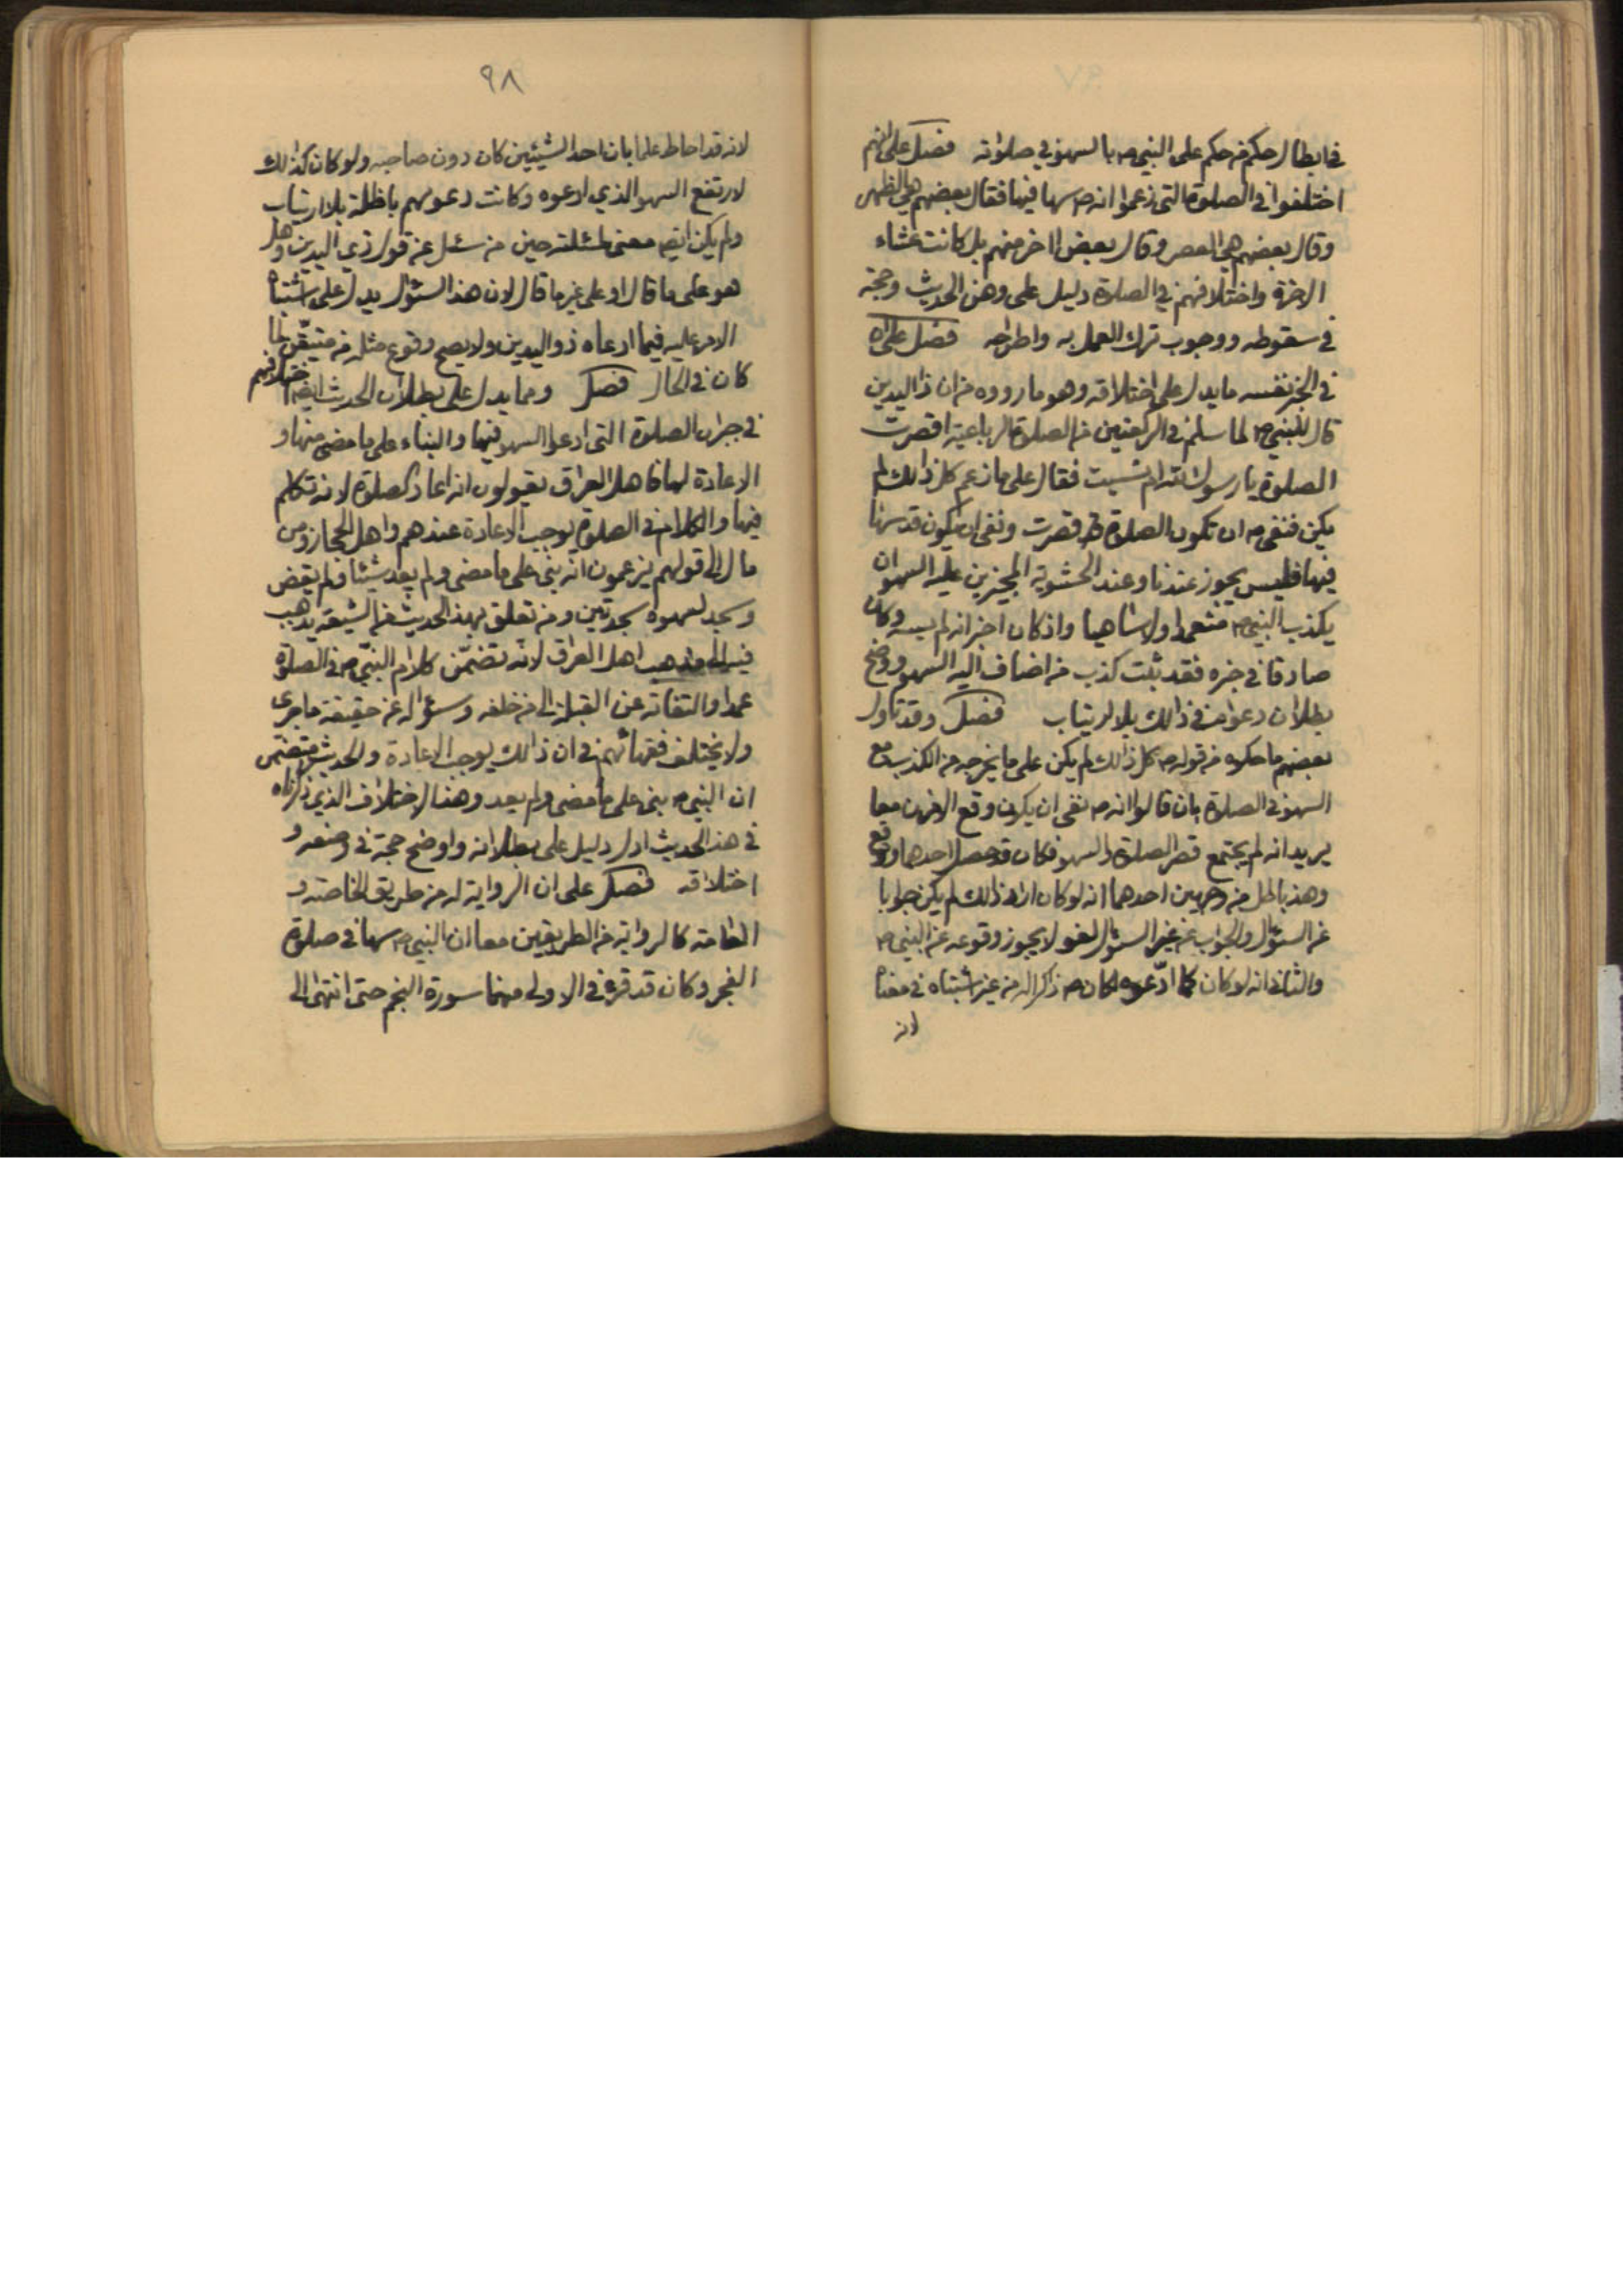 في ابطال حكم من حكم على النبي ص بالسهو في صلوته فصل على انهم
اختلفوا في الصلوة التي زعموا انه ص سها فيها فقال بعضهم هي الظهر
وقال بعضهم هي العصر وقال بعض اخر منهم بل كانت عشاء
الاخرة واختلافهم في الصلاة دليل على وهن الحديث وحجة
في سقوطه ووجوب ترك العمل به واطراحه فصل على ان
في الخبر نفسه ما يدل على اختلاقه وهو ما رووه من ان ذا اليدين
قال للنبي ص لما سلم في الركعتين من الصلاة الرباعية اقصرت
الصلوة يا رسول الله ام نسيت فقال على ما زعم كل ذالك لم
يكن فنفى ص ان تكون الصلاة قد قصرت ونفى ان يكون قد سها
فيها فليس يجوز عندنا وعند الحشوية المجيزين عليه السهو ان
يكذب النبي ص متعمدا ولا ساهيا واذ كان اخبر انه لم يسه وكان
صادقا في خبره فقد ثبت كذب من اضاف اليه السهو ووضح
بطلان دعواه في ذالك بلا ارتياب فصل وقد تاول
بعضهم ما حكوه من قوله ص كل ذالك لم يكن على ما يخرجه من الكذب مع
السهو في الصلاة بان قالوا انه ص نفى ان يكون وقع الامران معا
يريد انه لم يجتمع قصر الصلاة والسهو فكان قد حصل احدهما ووقع
وهذا باطل من وجهين احدهما انه لو كان اراد ذالك لم يكن جوابا
عن السؤال والجواب عن غير السؤال لغو لا يجوز وقوعه عن النبي ص
والثاني انه لو كان كما ادعوه لكان ص ذاكرا له من غير اشتباه في معناه
لانه
٩٨
لانه قد احاط علما بان احد الشيئين كان دون صاحبه ولو كان كذالك
لارتفع السهو الذي ادعوه وكانت دعويهم باطلة بلا ارتياب
ولم يكن ايض معنى لمسئلته حين من سئل عن قول ذي اليدين وهل
هو على ما قال او على غير ما قال لان هذا السؤال يدل على اشتباه
الامر عليه فيما ادعاه ذو اليدين ولا يصح وقوع مثله من متيقن لما
كان في الحال فصل ومما يدل على بطلان الحديث ايض اختلافهم
في جبران الصلاة التي ادعوا السهو فيها والبناء على ما مضى منها و
الاعادة لها فاهل العراق يقولون انه اعاد الصلوة لانه تكلم
فيها والكلام في الصلوة يوجب الاعادة عندهم واهل الحجاز ومن
مال الى قولهم يزعمون انه بنى على ما مضى ولم يعد شيئا ولم يقض
وسجد لسهوه سجدتين ومن تعلق بهذا الحديث من الشيعة يذهب
فيه الى مذهب اهل العراق لانه تضمن كلام النبي ص في الصلوة
عمدا والتفاته عن القبلة الى من خلفه وسؤاله عن حقيقة ما جرى
ولا يختلف فقهائهم في ان ذالك يوجب الاعادة والحديث متضمن
ان النبي ص بنى على ما مضى ولم يعد وهذا الاختلاف الذي ذكرناه
في هذا الحديث ادل دليل على بطلانه واوضح حجة في وضعه و
اختلاقه فصل على ان الرواية له من طريق الخاصة و
العامة كالرواية من الطريقين معا ان النبي ص سها في صلوة
الفجر وكان قد قرء في الاولى منهما سورة النجم حتى انتهى الى